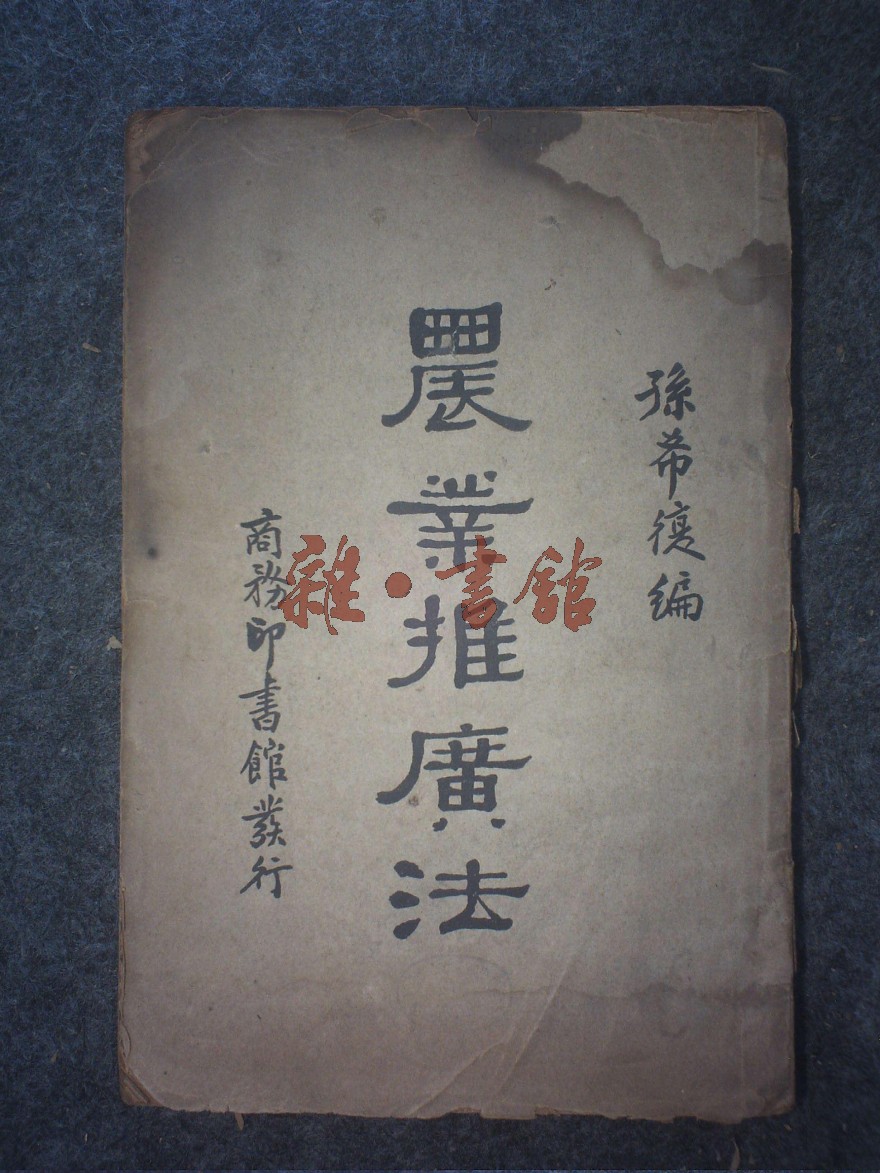 孫希復編
農業推廣法
商務印書館發行
雜·書館